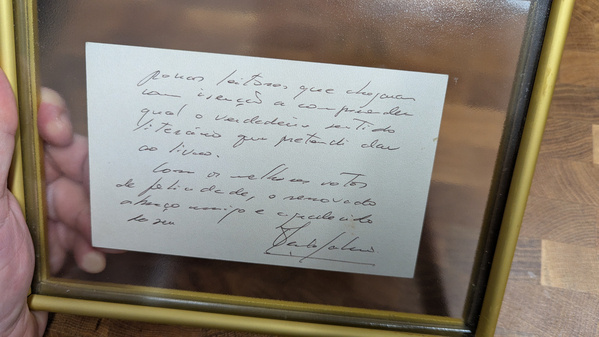 poucos leitores que chegaram
com isenção a compreender
qual o verdadeiro sentido
literário que pretendi dar
ao livro.
Com os melhores votos
de felicidade, o renovado
abraço amigo e agradecido
do seu